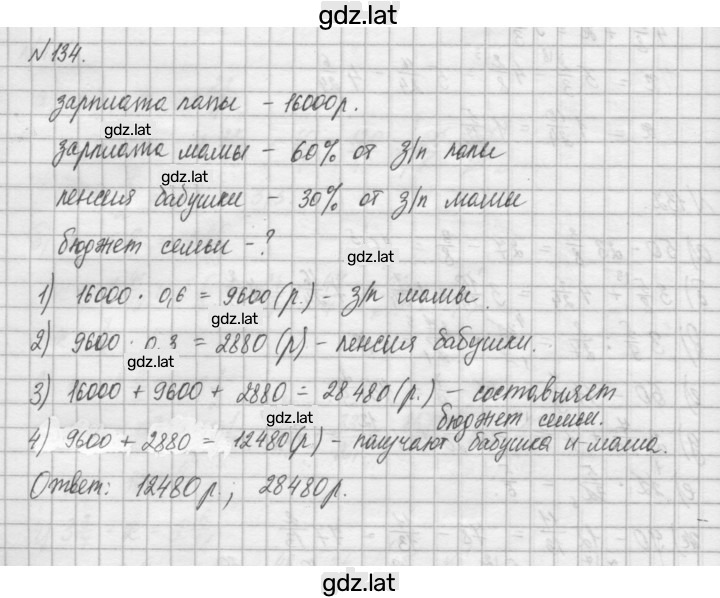 gdz.lat
№134.
зарплата папы – 16000р.
gdz.lat
зарплата мамы – 60% от з/п папы
gdz.lat
пенсия бабушки – 30% от з/п мамы
бюджет семьи – ?
gdz.lat
1) 16000 · 0,6 = 9600 (р.) – з/п мамы.
gdz.lat
2) 9600 · 0,3 = 2880 (р) – пенсия бабушки.
gdz.lat
3) 16000 + 9600 + 2880 = 28480 (р.) – составляет
бюджет семьи.
gdz.lat
4) 9600 + 2880 = 12480 (р) – получают бабушка и мама.
Ответ: 12480р.; 28480р.
gdz.lat